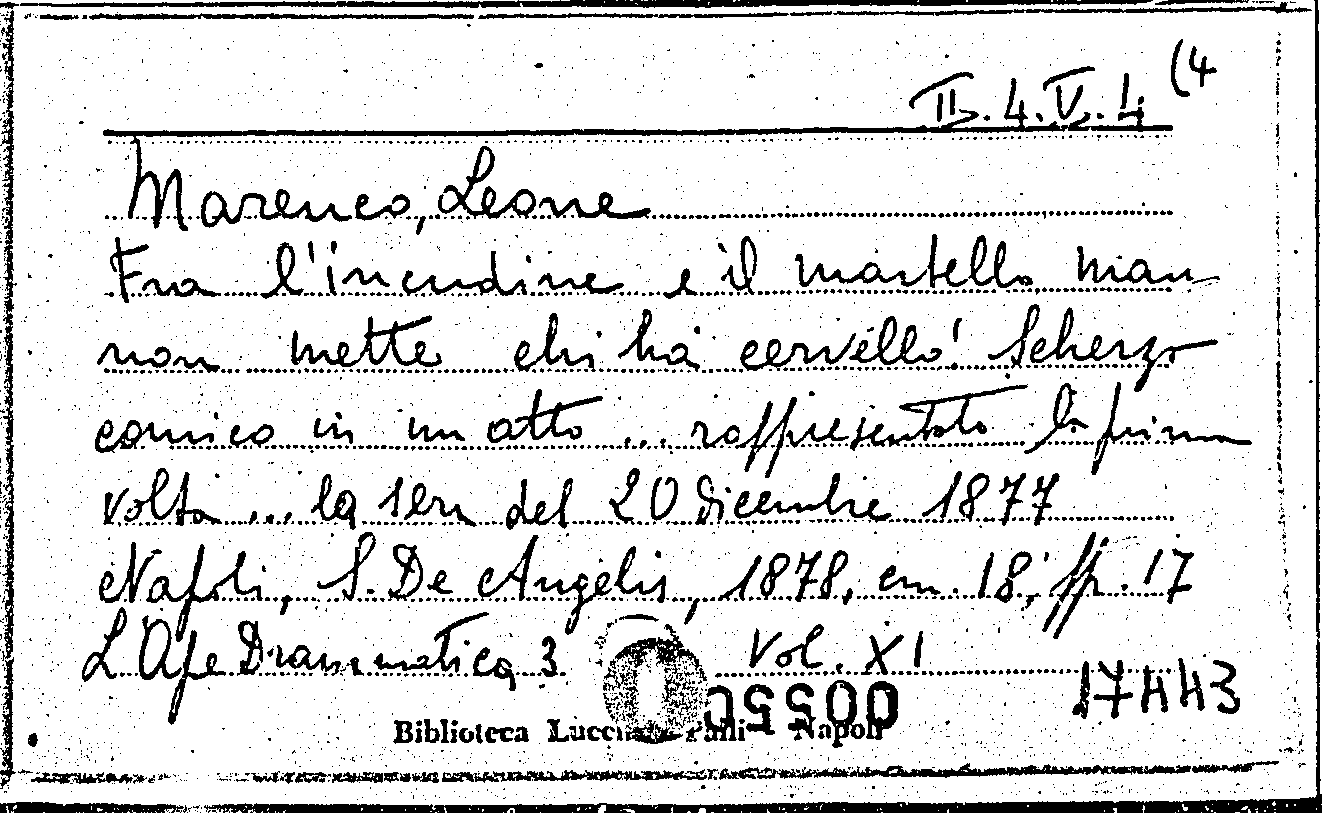 II. 4. V. 4 (4
Marenco, Leone
Fra l'incudine e il martello man
non mette chi ha cervello! Scherzo
comico in un atto ... rappresentato la prima
volta ... la sera del 20 Dicembre 1877
Napoli, S. De Angelis, 1878, cm. 18; pp. 17
L'Ape Drammatica 3 Vol. XI
17443
Biblioteca Lucchesi Palli Napoli